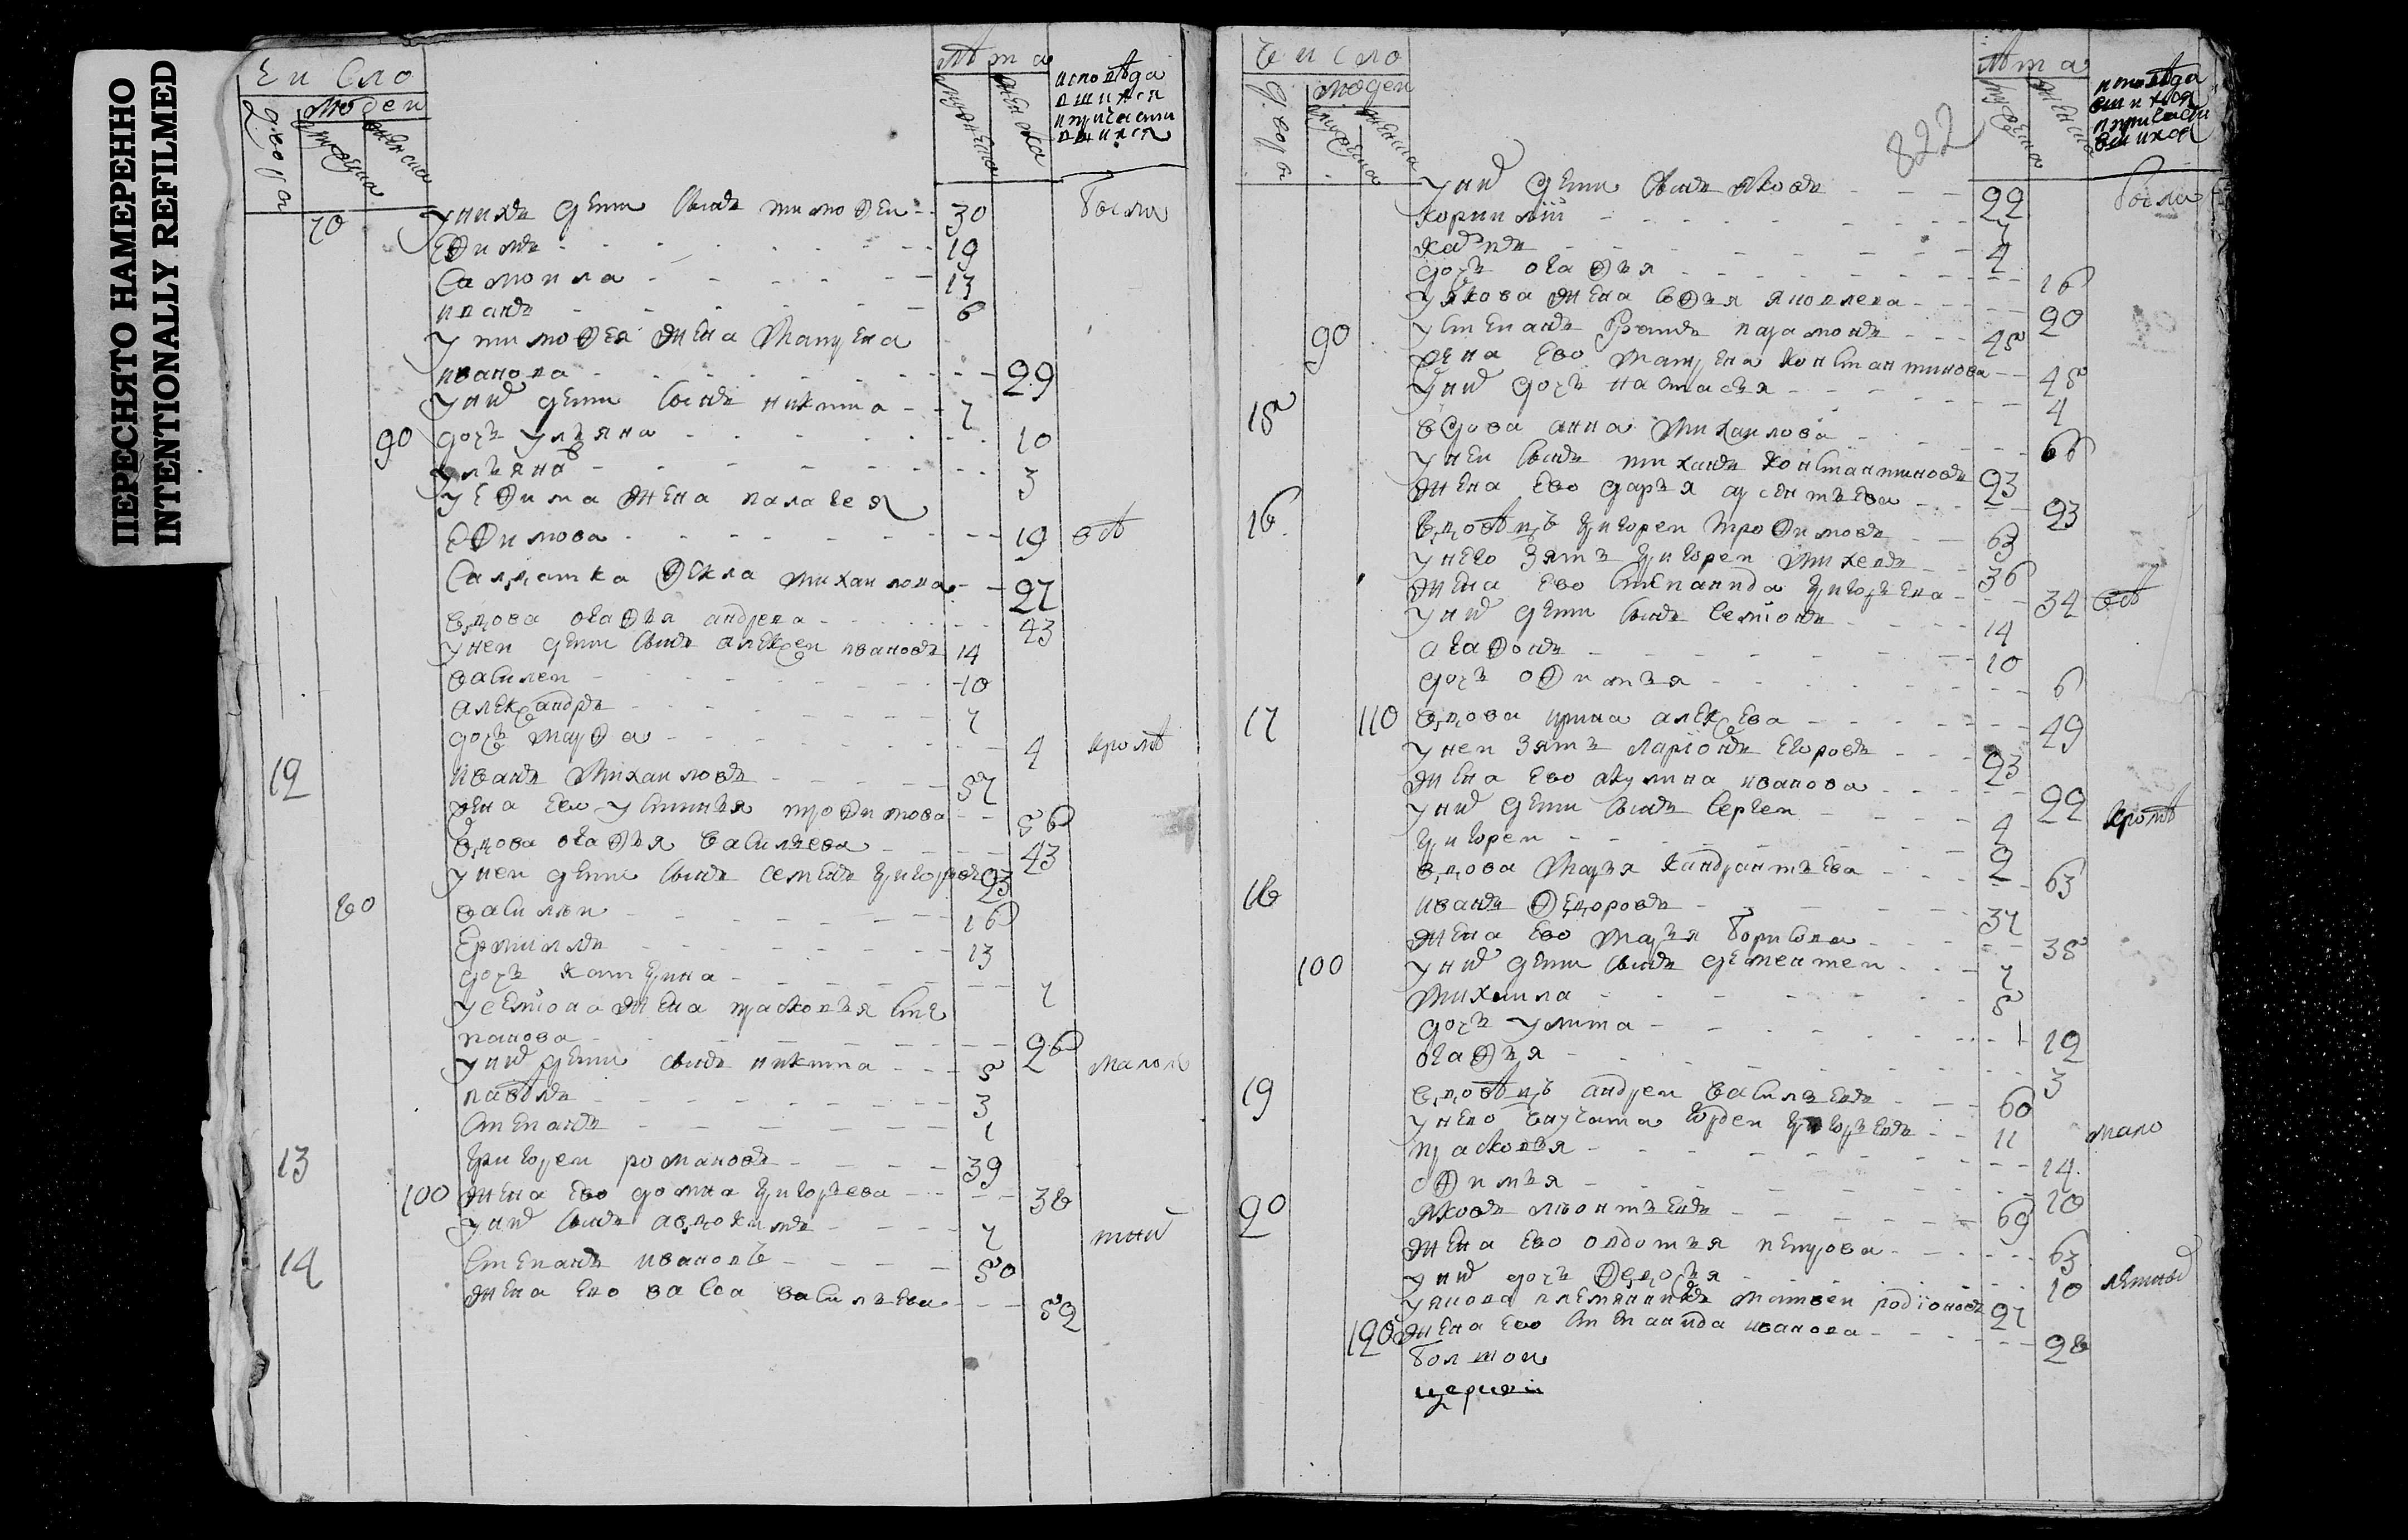 ПЕРЕСНЯТО НАМЕРЕННО
INTENTIONALLY REFILMED
Число
Лѣта
людей
двора
мужеска
женска
мужеска
женска
исповѣда
вшихся
и причасти
вшихся
70 у нихъ дети сынъ тимофеи 30 были
ефимъ 19
самоила 13
иванъ 6
у тимофея жена матрена
иванова 29
у нихъ дети сынъ никита 7
90 дочь ульяна 10
ульяна 3
у ефима жена палагея
ефимова 19 всѣ
салдатка фекла михаилова 27
вдова агафья андреева 43
у неи дети сынъ алексеи ивановъ 14
василеи 10
александръ 7
дочь марфа 4 кромѣ
12 иванъ михаиловъ 57
жена ево устинья трофимова 56
вдова агафья васильева 43
у неи дети сынъ семенъ григорьевъ 23
80 василеи 16
ермилъ 13
дочь катерина 7
у семиона жена прасковья сте
панова 26
у нихъ дети сынъ никита 5 малолѣ
павелъ 3
степанъ 1
13 григореи романовъ 39
100 жена ево домна григорьева 38
у нихъ сынъ авдокимъ 7 тних
14 степанъ ивановъ 50
жена ево васса васильева 52
Число
Лѣта
людей
двора
мужеска
женска
мужеска
женска
исповѣда
вшихся
и причасти
вшихся
822
у них дети сынъ яковъ 22 были
корнилїй 7
карпъ 4
дочь агафья 16
у якова жена софья яковлева 20
90 у степана братъ парамонъ 45
жена ево матрена константинова 45
у них дочь настасья 4
15 вдова анна михаилова 66
у неи сынъ тиханъ константиновъ 23
жена ево дарья арсентьева 23
16 вдовѣцъ григореи трофимовъ 63
у него зять григореи михеевъ 36
жена ево степанида григорьева 34 всѣ
у них дети сынъ семїонъ 14
агафонъ 10
дочь офимья 6
17 110 вдова ирина алексеева 49
у неи зять ларїонъ егоровъ 23
жена ево акулина иванова 22
у них дети сынъ сергеи 4 кромѣ
григореи 2
вдова марья кандрантьева 63
18 иванъ федоровъ 37
жена ево марья борисова 35
100 у них дети сынъ дементеи 7
михаила 5
дочь улита 12
агафья 3
19 вдовѣцъ андреи васильевъ 60
у него внучата гордеи григорьевъ 11 мало
прасковья 14
офимья 10
20 яковъ леонтьевъ 69
жена ево овдотья петрова 63
у них дочь федосья 10 лѣтных
у якова племянникъ матвеи родїоновъ 27
120 жена ево степанида иванова 28
болшои
церкви